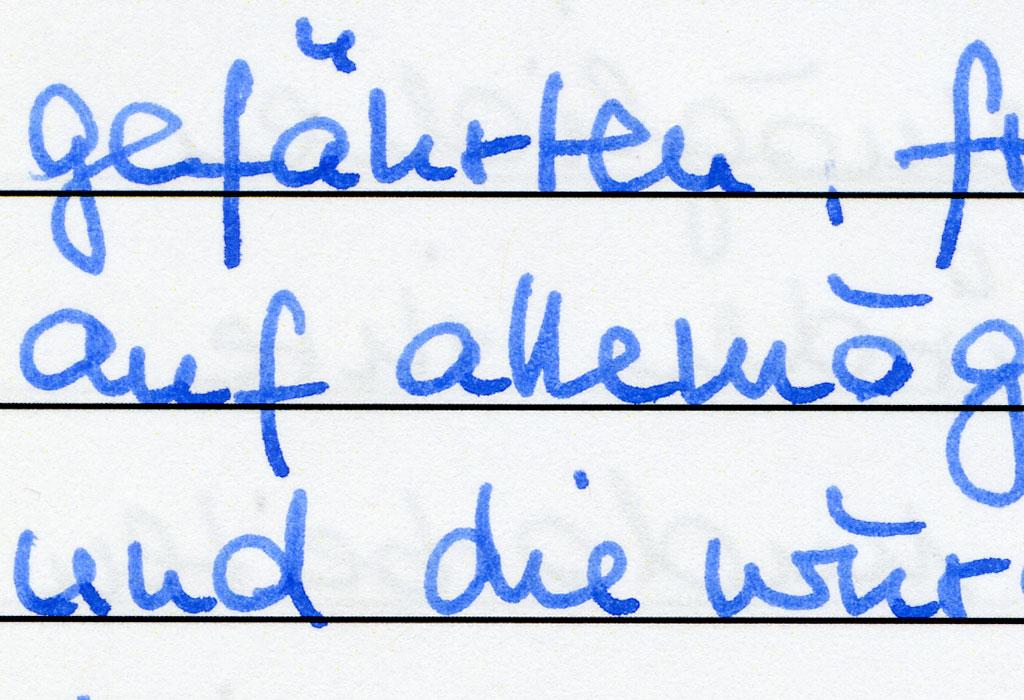 gefährten, fr
auf allemög
und die wür